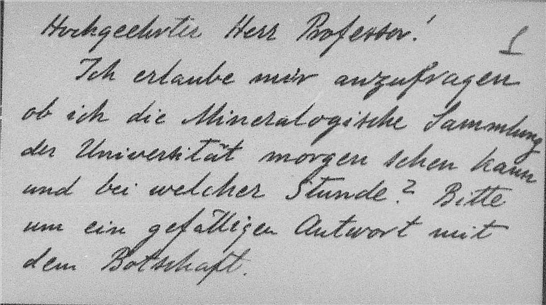 Hochgeehrter Herr Professor!
1
Ich erlaube mir anzufragen
ob ich die Mineralogische Sammlung
der Universität morgen sehen kann
und bei welcher Stunde? Bitte
um ein gefälligen Antwort mit
dem Botschaft.